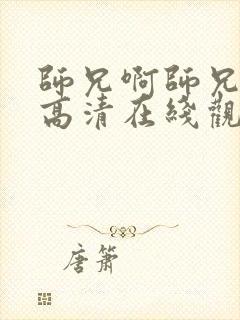 師兄啊師兄
高清在綫觀
唐簫